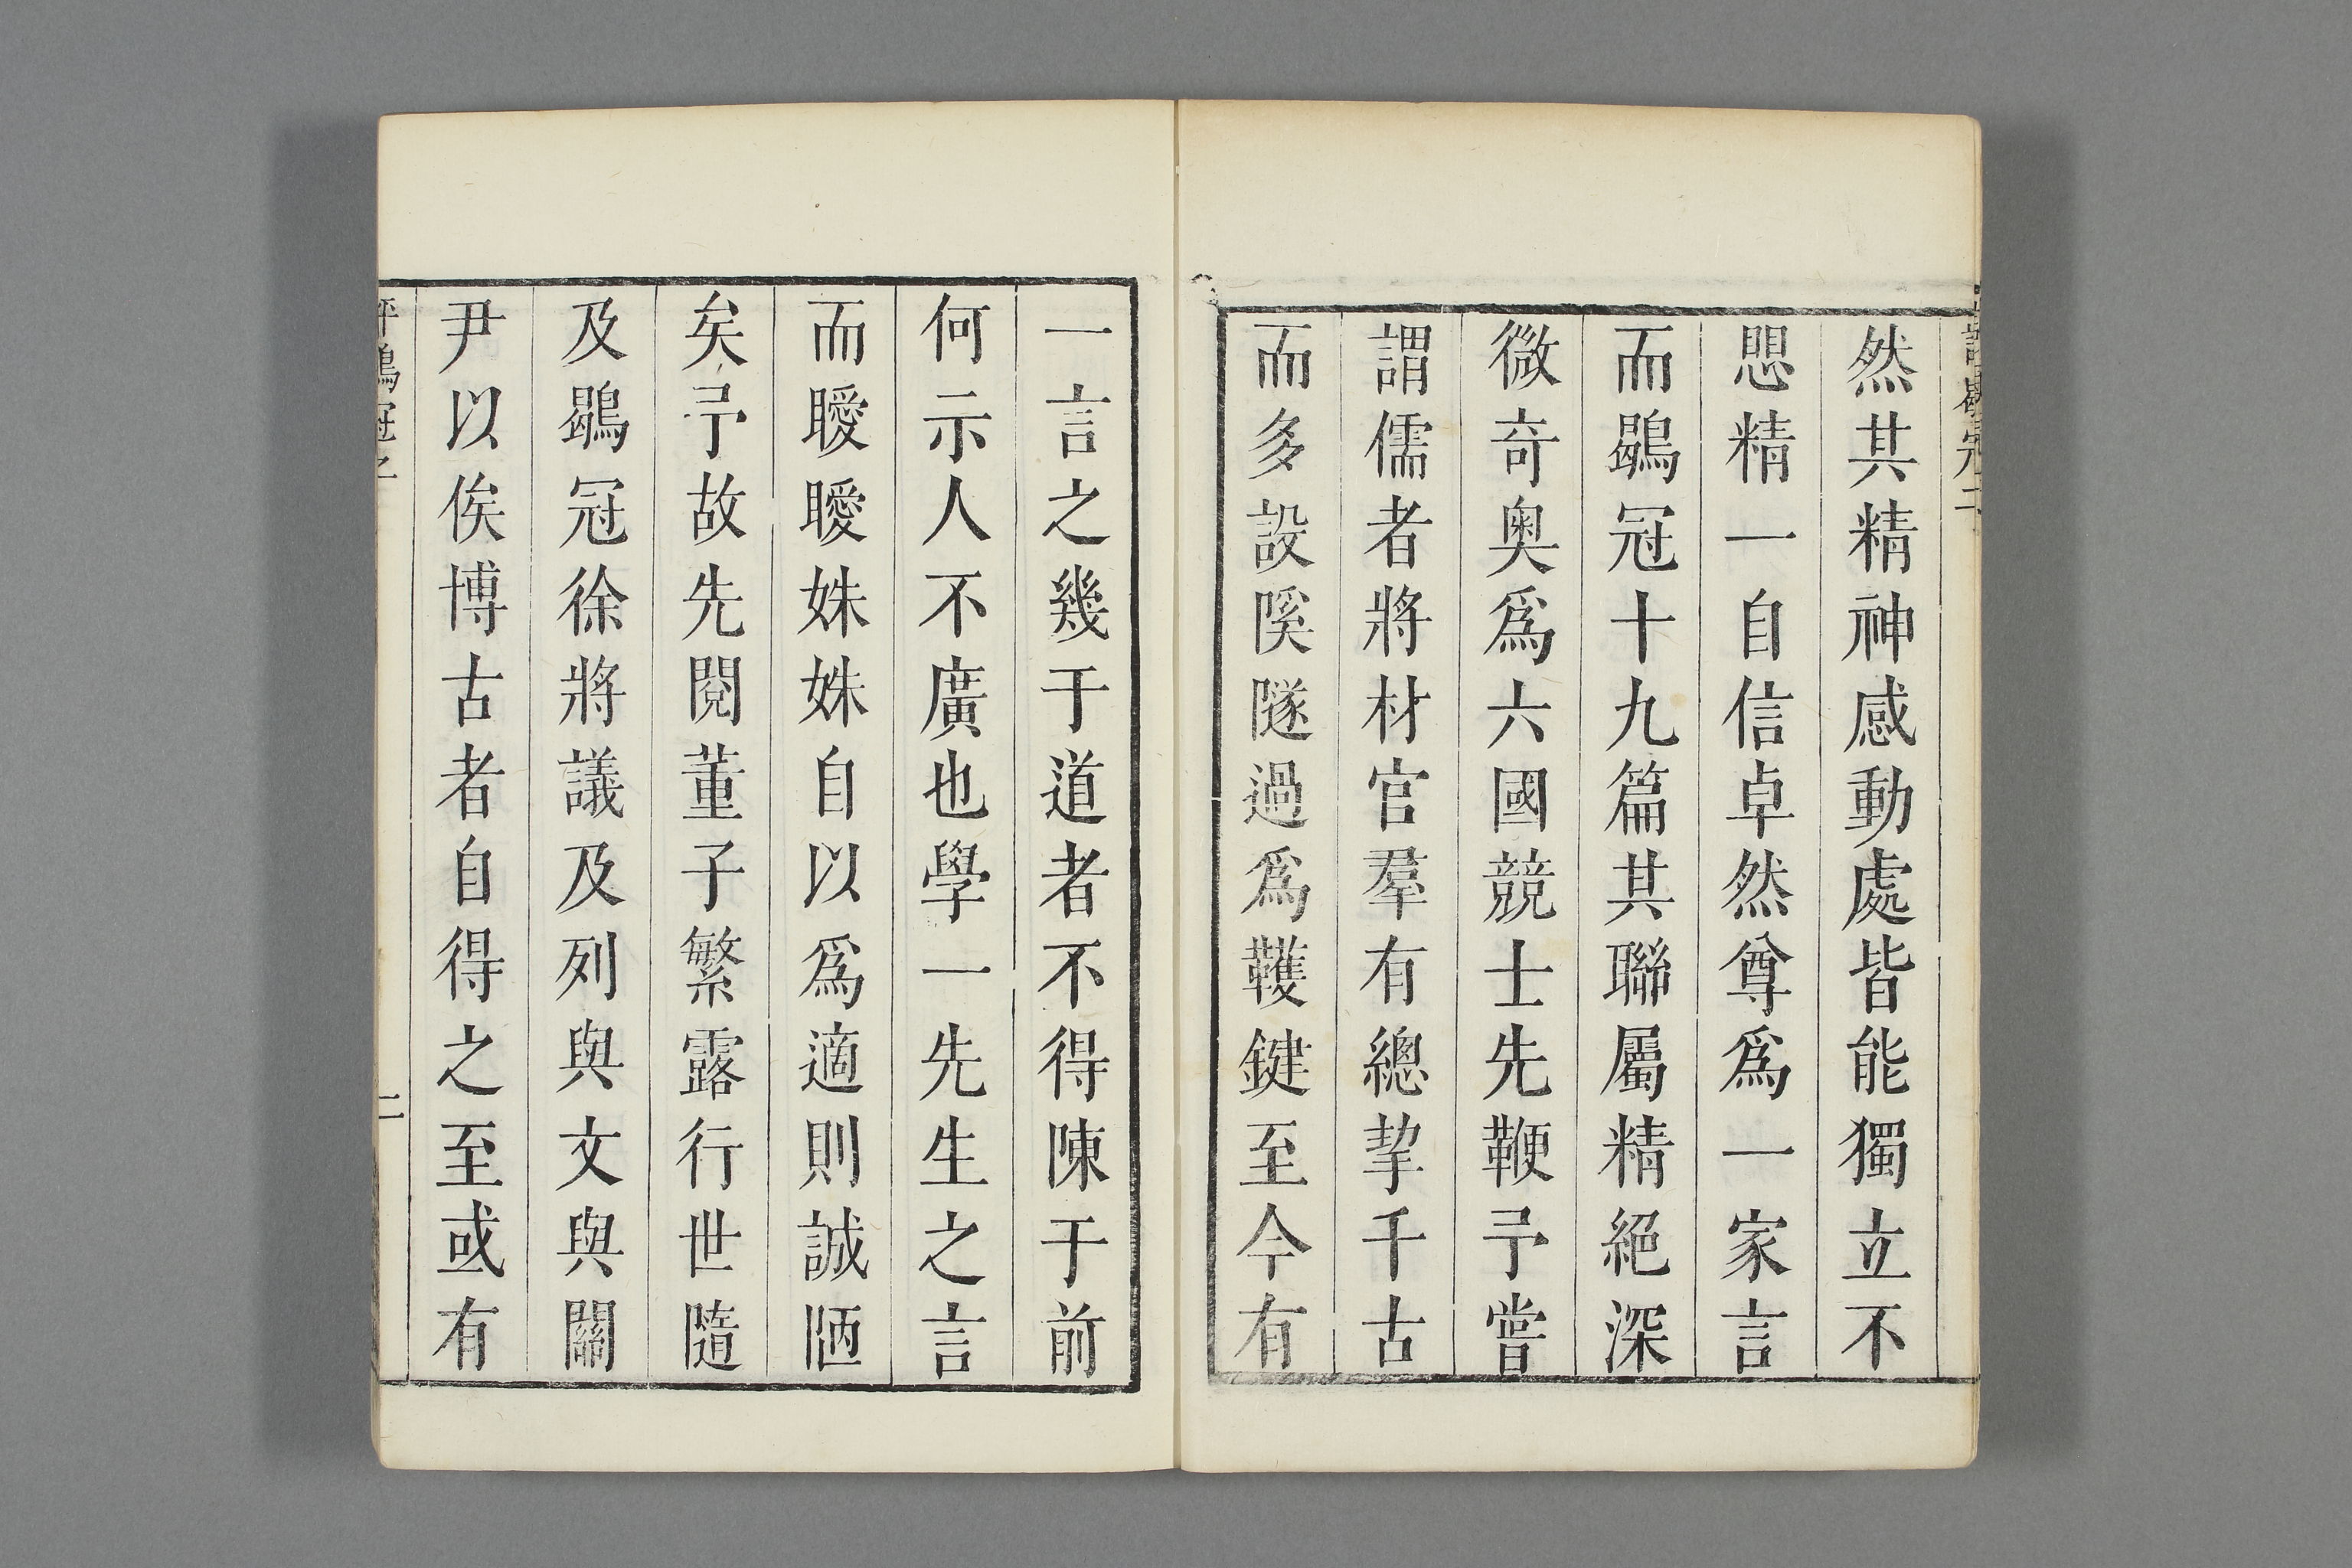 然其精神感動處皆能獨立不
思精一自信卓然尊爲一家言
而鶡冠十九篇其聯屬精絕深
微奇奧爲六國競士先鞭予嘗
謂儒者將材官羣有總挈千古
而多設隂隧過爲韄鍵至今有
一言之幾于道者不得陳于前
何示人不廣也學一先生之言
而曖曖姝姝自以爲適則誠陋
矣予故先閱董子繁露行世隨
及鶡冠徐將議及列與文與關
尹以俟博古者自得之至或有
二